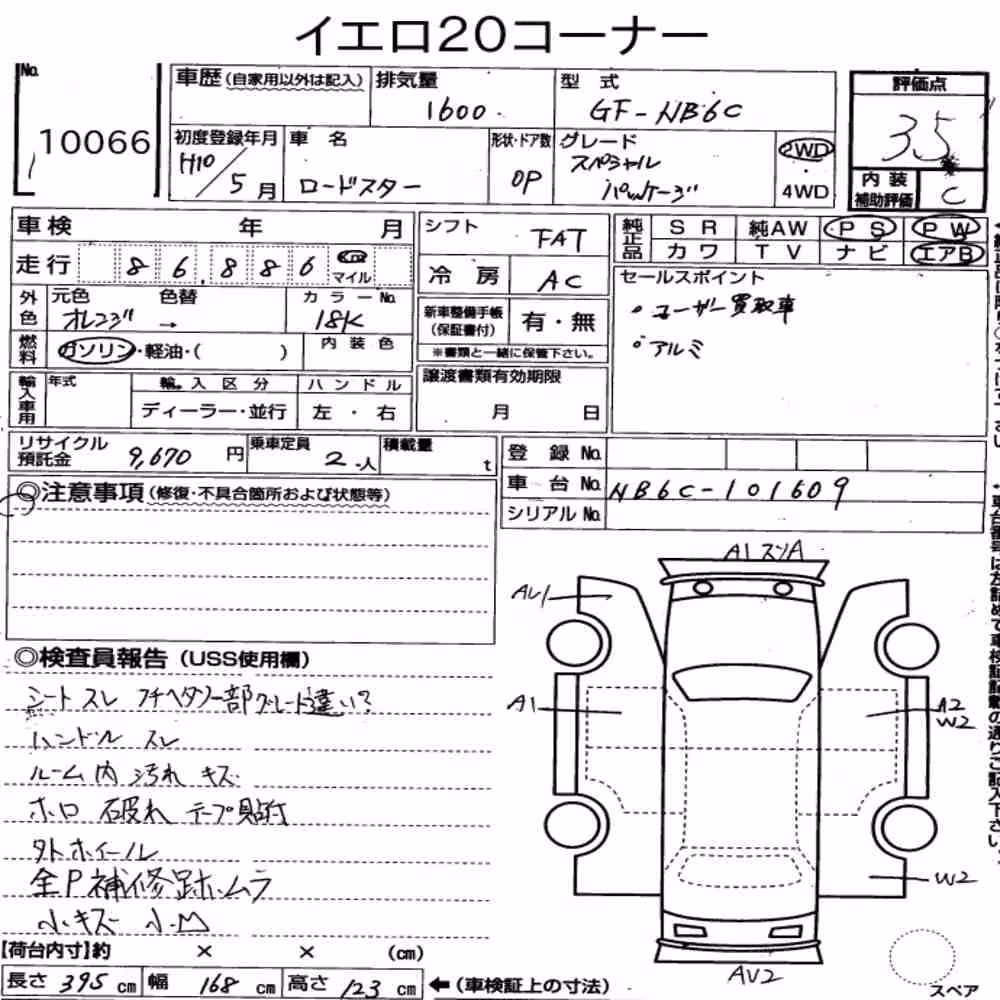 イエロ20コーナー
No.
10066
車歴(自家用以外は記入)
排気量
1600
型 式
GF-NB6C
初度登録年月
H10/5月
車 名
ロードスター
形状・ドア数
OP
グレード
スペシャル
パッケージ
2WD
4WD
評価点
3.5
内装
補助評価
C
車検 年 月
走行 86,886 km
マイル
外色
元色
オレンジ
色替
→
カラーNo.
18K
燃料
ガソリン・軽油・( )
内装色
輸入車用
年式
輸入区分
ディーラー・並行
ハンドル
左・右
シフト
FAT
冷房
AC
新車整備手帳
(保証書付)
有・無
※書類と一緒に保管下さい。
譲渡書類有効期限
月 日
純正品
SR 純AW PS PW
カワ TV ナビ エアB
セールスポイント
・ユーザー買取車
・アルミ
リサイクル
預託金
9,670円
乗車定員
2人
積載量
t
登録No.
車台No.
NB6C-101609
シリアルNo.
◎注意事項(修復・不具合箇所および状態等)
◎検査員報告(USS使用欄)
シート スレ
グレード違い?
ハンドル スレ
ルーム内 汚れ キズ
ホロ 破れ テープ貼付
外ホイール
全P補修跡ホムラ
小キズ 小凹
【荷台内寸】約 × × (cm)
長さ 395 cm 幅 168 cm 高さ 123 cm ←(車検証上の寸法)
A1
AU1
A1
A2
W2
W2
AU2
スペア